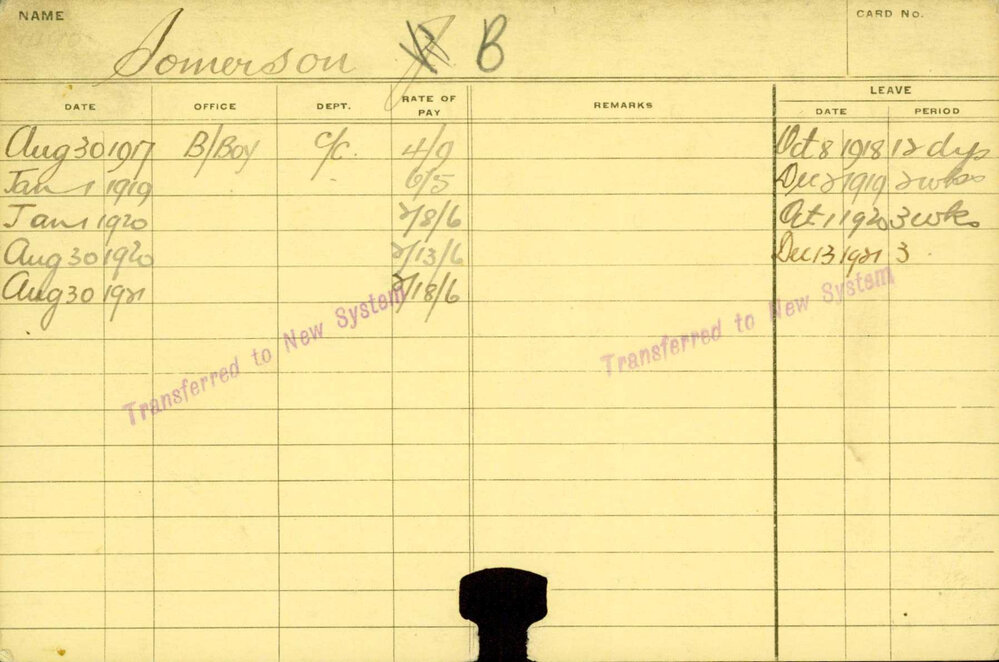 NAME
CARD No.
Somerson B
DATE OFFICE DEPT. RATE OF PAY REMARKS LEAVE
DATE PERIOD
Aug 30 1917 B/Boy C/C. 4/9 Oct 8 1918 12 dys
Jan 1 1919 6/5 Dec 2 1919 2 wks
Jan 1 1920 2/8/6 Oct 1 1920 3 wks
Aug 30 1920 2/13/6 Dec 13 1921 3
Aug 30 1921 2/18/6
Transferred to New System
Transferred to New System